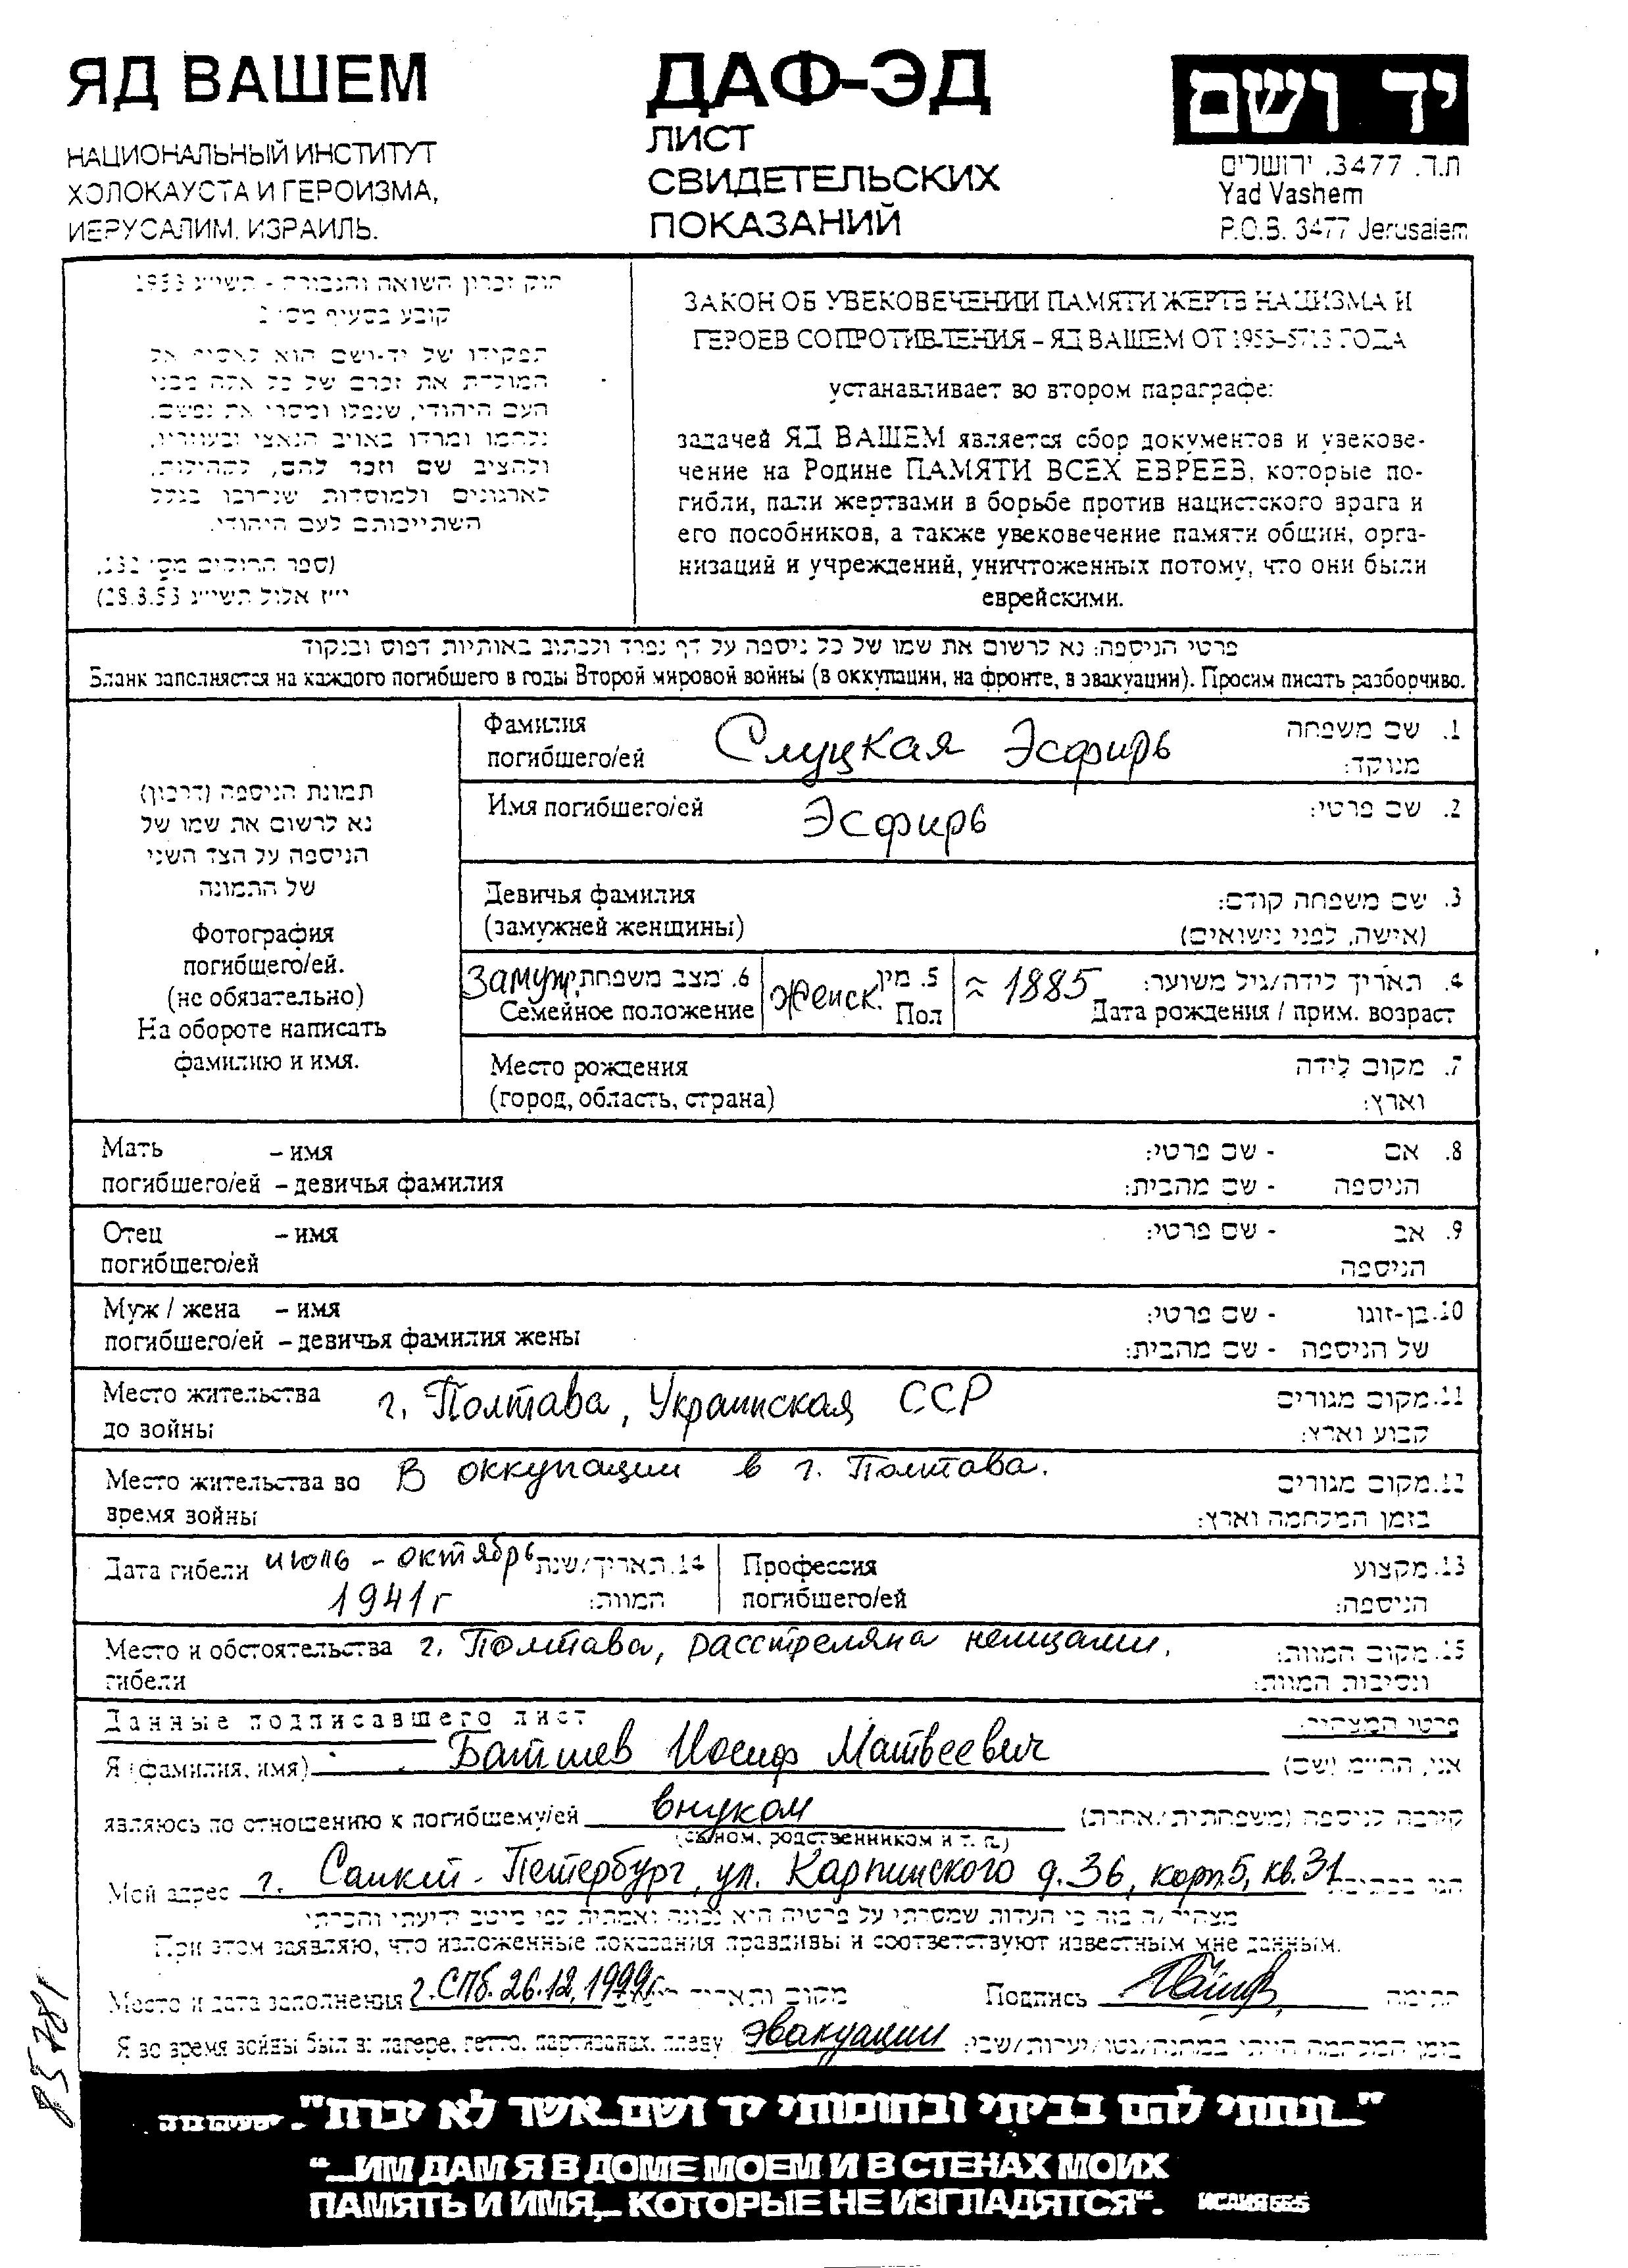 ЯД ВАШЕМ
НАЦИОНАЛЬНЫЙ ИНСТИТУТ
ХОЛОКАУСТА И ГЕРОИЗМА,
ИЕРУСАЛИМ, ИЗРАИЛЬ.
ДАФ-ЭД
ЛИСТ
СВИДЕТЕЛЬСКИХ
ПОКАЗАНИЙ
יד ושם
ת.ד. 3477, ירושלים
Yad Vashem
P.O.B. 3477 Jerusalem
חוק זכרון השואה והגבורה - תשי״ג 1953
קובע בסעיף מס׳ 2
תפקידו של יד-ושם הוא לאסוף אל
המולדת את זכרם של כל אלה מבני
העם היהודי, שנפלו ומסרו את נפשם,
נלחמו ומרדו באויב הנאצי ובעוזריו,
ולהציב שם וזכר להם, לקהילות,
לארגונים ולמוסדות שנחרבו בגלל
השתייכותם לעם היהודי.
(ספר החוקים מס׳ 132,
י״ז אלול תשי״ג 28.8.53)
ЗАКОН ОБ УВЕКОВЕЧЕНИИ ПАМЯТИ ЖЕРТВ НАЦИЗМА И
ГЕРОЕВ СОПРОТИВЛЕНИЯ – ЯД ВАШЕМ ОТ 1953–5713 ГОДА
устанавливает во втором параграфе:
задачей ЯД ВАШЕМ является сбор документов и увекове-
чение на Родине ПАМЯТИ ВСЕХ ЕВРЕЕВ, которые по-
гибли, пали жертвами в борьбе против нацистского врага и
его пособников, а также увековечение памяти общин, орга-
низаций и учреждений, уничтоженных потому, что они были
еврейскими.
פרטי הניספה: נא לרשום את שמו של כל ניספה על דף נפרד ולכתוב באותיות דפוס ובנקוד
Бланк заполняется на каждого погибшего в годы Второй мировой войны (в оккупации, на фронте, в эвакуации). Просим писать разборчиво.
תמונת הניספה (דרכון)
נא לרשום את שמו של
הניספה על הצד השני
של התמונה
Фотография
погибщего/ей.
(не обязательно)
На обороте написать
фамилию и имя.
Фамилия Слуцкая Эсфирь 1. שם משפחה
погибшего/ей מנוקד:
Имя погибшего/ей Эсфирь 2. שם פרטי:
Девичья фамилия 3. שם משפחה קודם:
(замужней женщины) (אישה, לפני נישואים)
замужн. 6. מצב משפחתי Женск. 5. מין ≈ 1885 4. תאריך לידה/גיל משוער:
Семейное положение Пол Дата рождения / прим. возраст
Место рождения 7. מקום לידה
(город, область, страна) וארץ:
Мать – имя 8. אם - שם פרטי:
погибшего/ей – девичья фамилия הניספה - שם מהבית:
Отец – имя 9. אב - שם פרטי:
погибшего/ей הניספה
Муж / жена – имя 10. בן-זוגו - שם פרטי:
погибшего/ей – девичья фамилия жены של הניספה - שם מהבית:
Место жительства г. Полтава, Украинская ССР 11. מקום מגורים
до войны קבוע וארץ:
Место жительства во В оккупации в г. Полтава. 12. מקום מגורים
время войны בזמן המלחמה וארץ:
Дата гибели июль - октябрь 14. תאריך/שנת Профессия 13. מקצוע
1941г המוות: погибшего/ей הניספה:
Место и обстоятельства г. Полтава, расстреляна немцами. 15. מקום המוות:
гибели ונסיבות המוות:
Данные подписавшего лист פרטי המצהיר:
Я (фамилия, имя) Батшев Иосиф Матвеевич אני, החיים (שם)
являюсь по отношению к погибшему/ей внуком קירבה לניספה (משפחתית/אחרת)
(сыном, родственником и т. п.)
Мой адрес г. Санкт-Петербург, ул. Карпинского д.36, корп.5, кв.31
מצהיר/ה בזה כי העדות שמסרתי על פרטיה היא נכונה ואמתית לפי מיטב ידיעתי והכרתי
При этом заявляю, что изложенные показания правдивы и соответствуют известным мне данным.
Место и дата заполнения г. СПб. 26.12.1999г. מקום ותאריך Подпись חתימה
Я во время войны был в: лагере, гетто, партизанах, плену эвакуации בזמן המלחמה הייתי במחנה/גטו/יערות/שבי:
85781
"...ונתתי להם בביתי ובחומותי יד ושם...אשר לא יכרת". ישעיהו נו ה
"...ИМ ДАМ Я В ДОМЕ МОЕМ И В СТЕНАХ МОИХ
ПАМЯТЬ И ИМЯ,... КОТОРЫЕ НЕ ИЗГЛАДЯТСЯ". ИСАИЯ 56:5